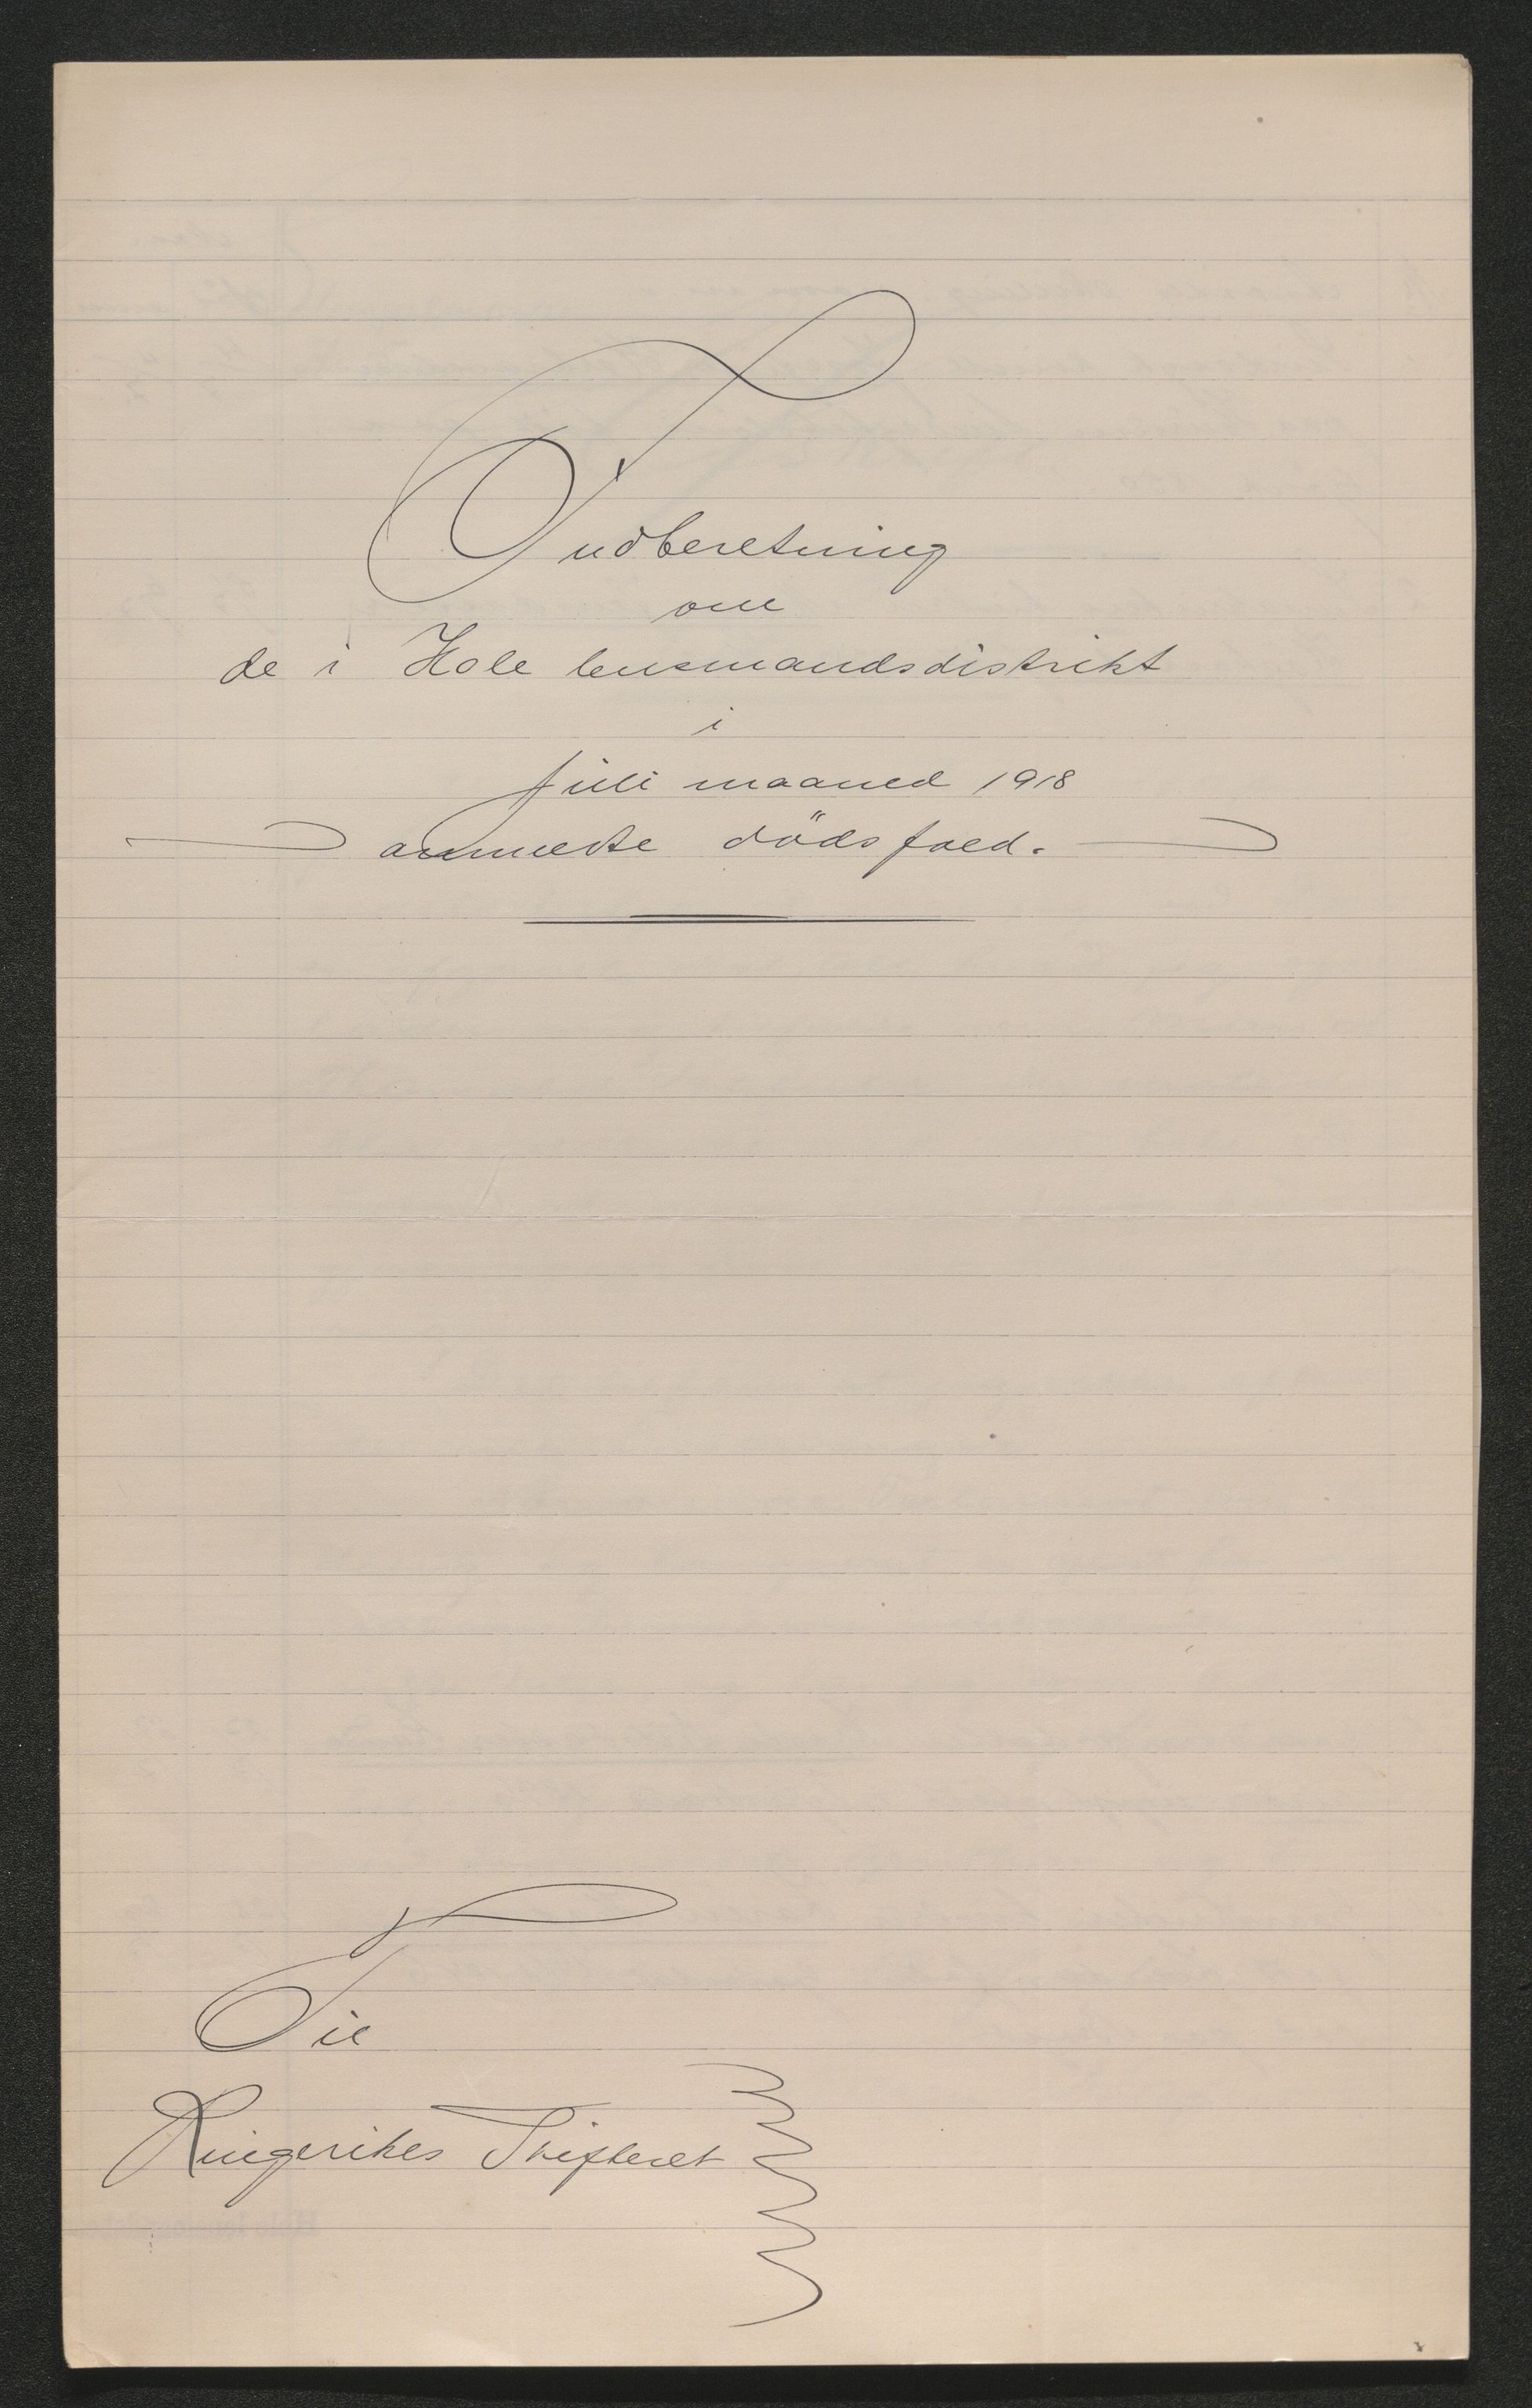 Indberetning
om
de i Hole lensmandsdistrikt
i
juli maaned 1918
anmeldte dödsfald.
Til
Ringerikes Skifteret